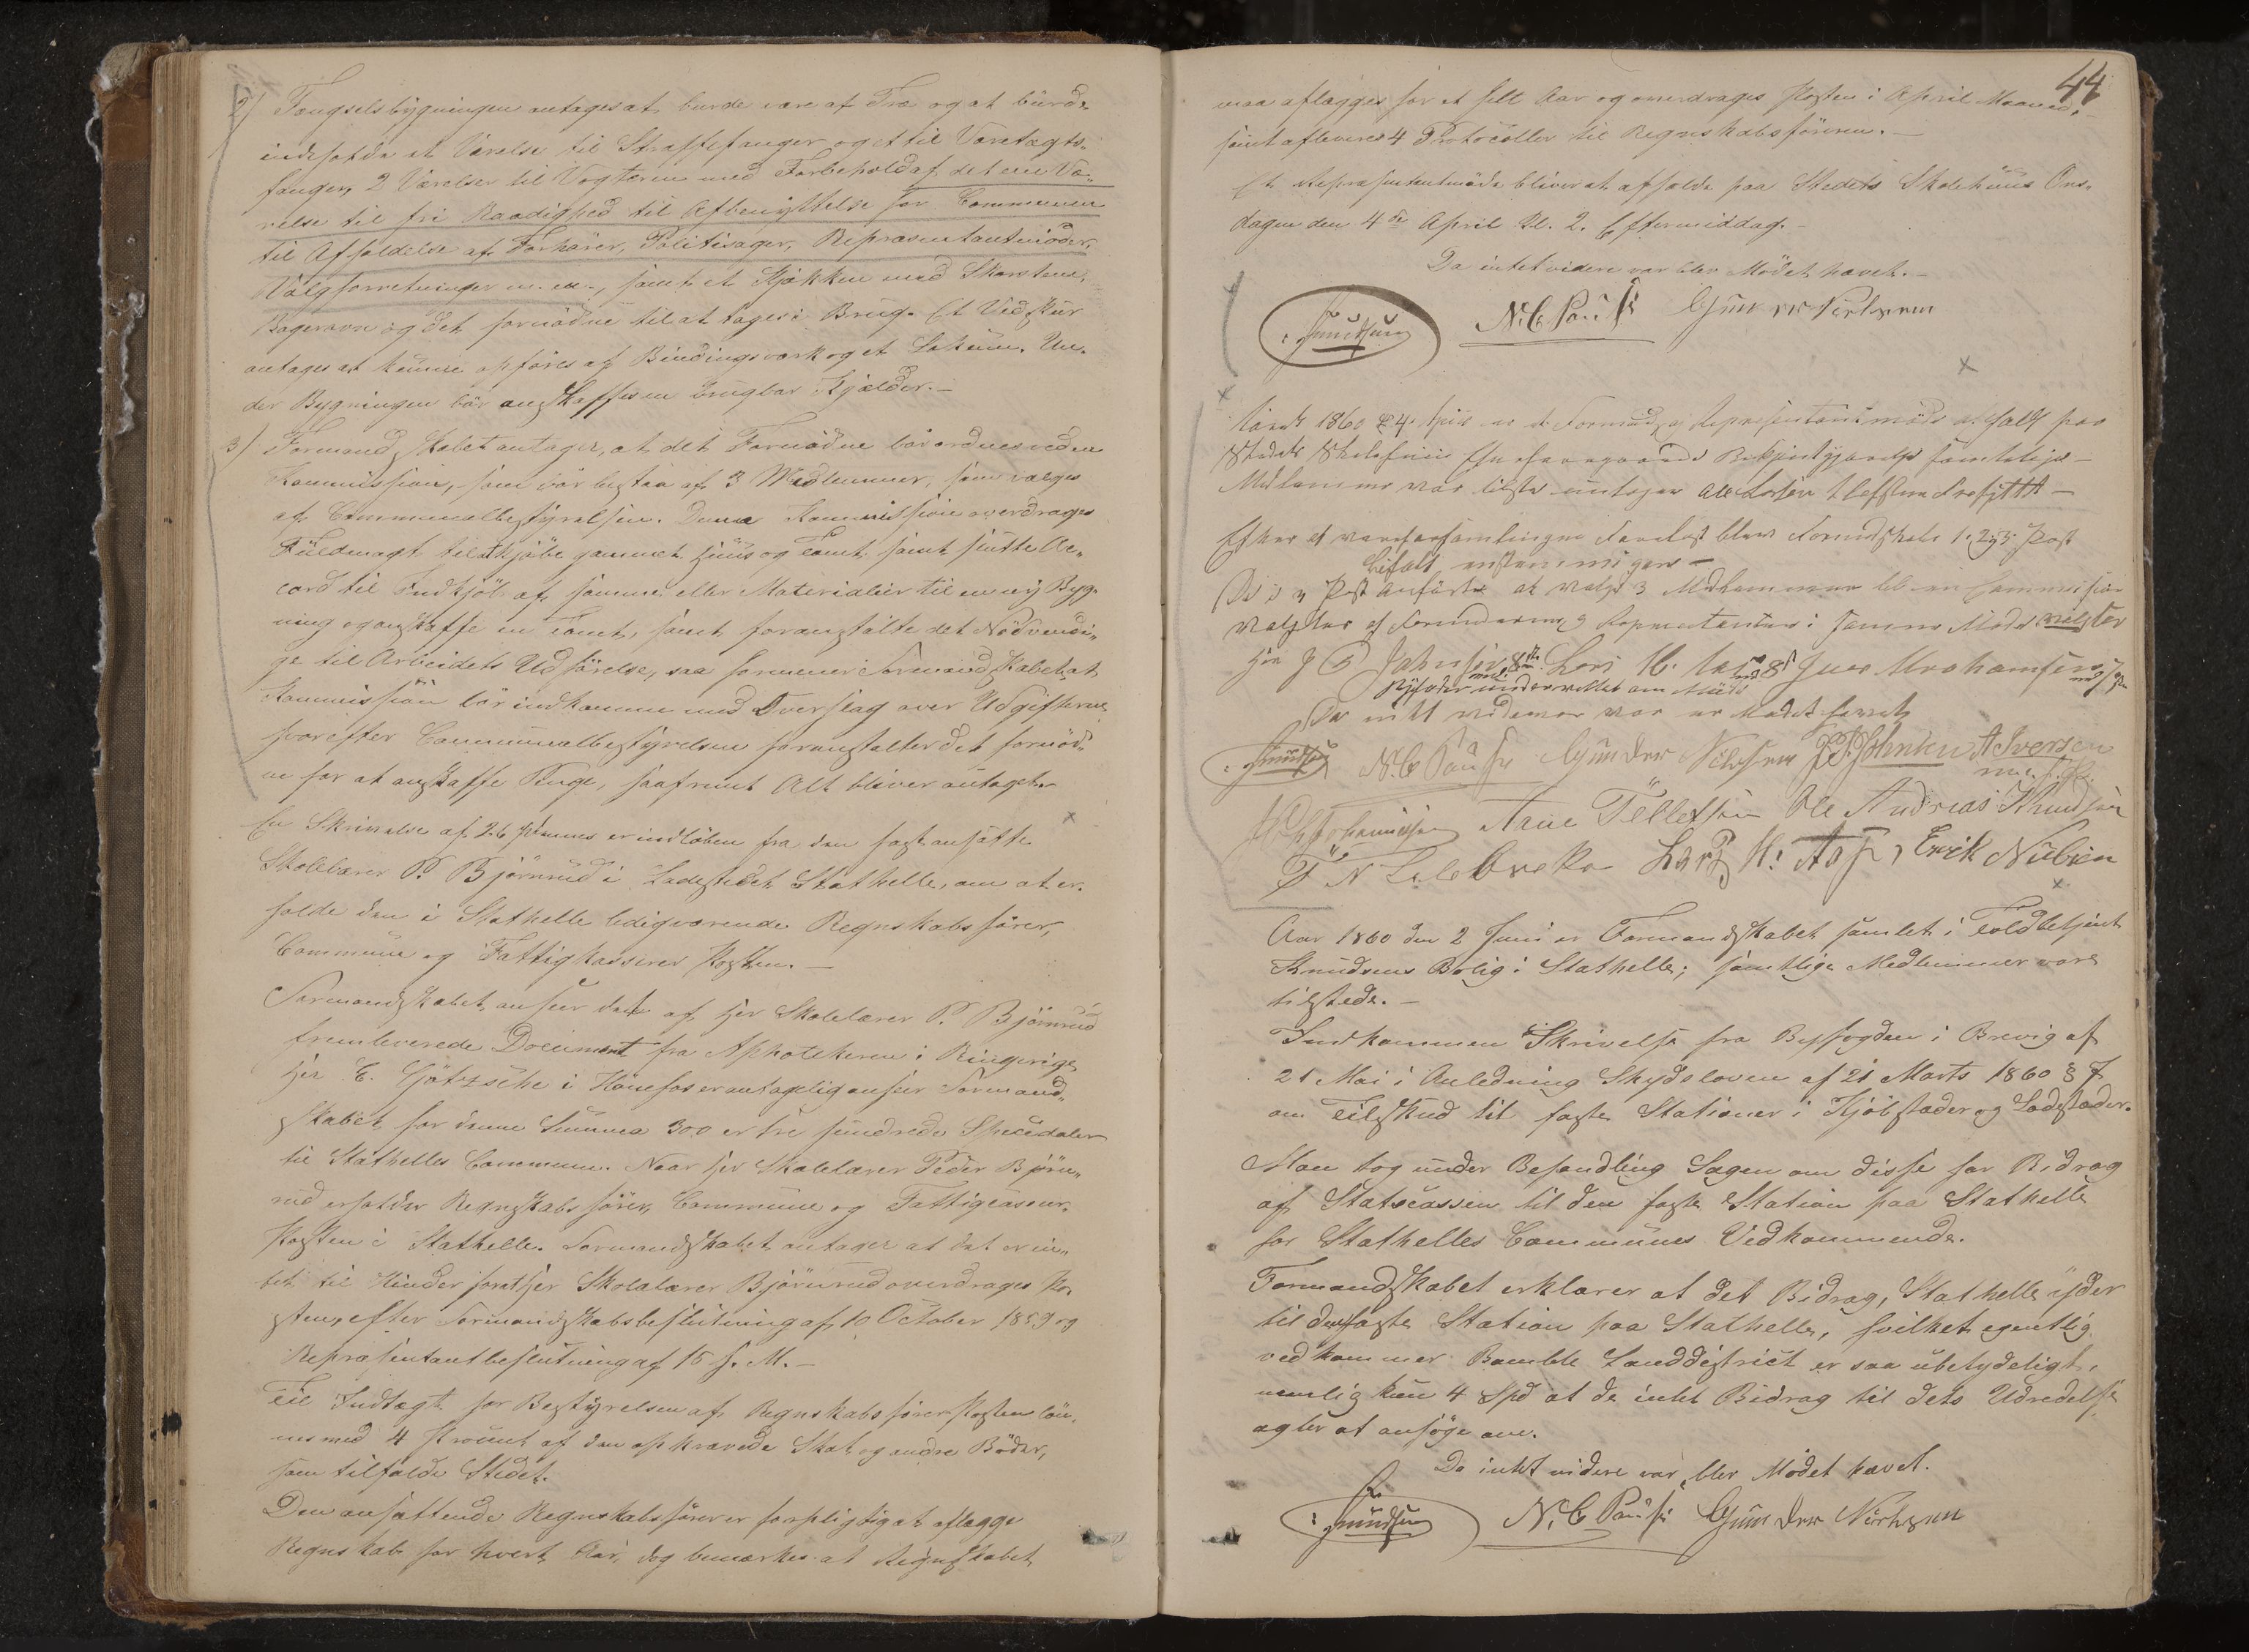 2) Fængselsbygningen antages at burde være af Træ og at burde
indeholde et Værelse til Straffefanger og et til Varetægts-
fanger, 2 Værelser til Vogteren med Forbehold af det ene Væ-
relse til fri Raadighed til Afbenyttelse for Communen
til Afholdelse af Forhører, Politisager, Repræsentantmöder,
Valgforretninger m. m., samt et Kjøkken med Skorsteen,
Bagerovn og det fornødne til at tages i Brug. Et Vedskur
antages at kunne opføres af Bindingsværk og et Lokum. Un-
der Bygningen bör anskaffes en brugbar Kjælder.—
3) Formandskabet antager, at det Fornødne bör ordnes ved en
Kommission, som bör bestaa af 3 Medlemmer, som vælges
af Communalbestyrelsen. Denne Kommission overdrages
Fuldmagt til at kjöbe gammelt Huus og Tomt samt slutte Ac-
cord til Indkjöb af samme eller Materialier til en ny Byg-
ning og anskaffe en Tomt, samt foranstalte det Nödvendi-
ge til Arbeidets Udförelse, saa formener Formandskabet at
Kommission bör indkomme med Overslag over Udgifterne
hvorefter Communalbestyrelsen foranstalter det fornöd-
ne for at anskaffe Penge, saafremt Alt bliver antaget.
En Skrivelse af 26 er indlöben fra den fast ansatte
Skolelærer P. Björnrud i Ladestedet Stathelle, om at er-
holde den i Stathelle ledigværende Regnskabsförer,
Commune og Fattigkasserer Posten.—
Formandskabet anseer det af Hr Skolelærer P. Björnrud
fremleverede Document fra Aphotekeren i Ringerige
Hr C. Götzsche i Hönefos er antagelig anseer Formand-
skabet for denne Summa 300 er tre hundrede Speciedaler
til Stathelles Commune. Naar Hr Skolelærer Peder Björn-
rud erholder Regnskabsförer, Commune og Fattigcasserer
Posten i Stathelle. Formandskabet antager at det er in-
tet til Hinder for at Hr Skolelærer Björnrud overdrages Po-
sten, efter Formandskabsbeslutning af 10 October 1859 og
Repræsentantbeslutning af 15 s. M.—
Til Indtægt for Bestyrelsen af Regnskabsförer Posten lön-
nes med 4 Procent af den opkrævede Skat og andre Böder,
som tilfalde Stedet.
Den ansættende Regnskabsförer er forpligtig at aflægge
Regnskab for hvert Aar, dog bemærkes at Regnskabet
44
maa aflægges for et helt Aar og overdrages Posten i April Maaned,
samt afleveres 4 Protocoller til Regnskabsföreren.—
Et Repræsentantmöde bliver at afholde paa Stedets Skolehuus Ons-
dagen den 4de April Kl. 2. Eftermiddag.—
Da intet videre var blev Mödet hævet.—
Knudsen N. C Pauss Gunder Nielsen
Aaret 1860 d 4. April er et Formands og Representantmöde afholdt paa
Stedets Skolehuus Efter foregaaende Bekjentgjørelse samtelige
Medlemmer var tilstede untagen
Efter at være forsamlingen Forelæst blev Formandskabets 1. 2 og 3 Post
bifalt enstemmigen —
valgte 3 Medlemmer til en Commission
valgtes af Formændene og Representanter i samme Möde valgtes
Hr J P Johnsen Lars H. Aas Iver Abrahamsen
Da intet videre var er Mödet hævet
Knudsen N. C Pauss Gunder Nielsen J P Johnsen A Iversen
m. f. P.
Arne Tellefsen Ole Andreas Knudsen
Lars H. Aas, Erik Nielsen
Aar 1860 den 2 Juni er Formandskabet samlet i Toldbetjent
Knudsens Bolig i Stathelle; samtlige Medlemmer vare
tilstede.—
Indkommen Skrivelse fra Byfogden i Brevig af
21 Mai i Anledning Skydsloven af 21 Marts 1860 § 7
om Tilskud til faste Stationer i Kjöbstæder og Ladestæder.
Man tog under Behandling Sagen om disse for Bidrag
af Statscassen til den faste Station paa Stathelle
for Stathelles Communes Vedkommende.
Formandskabet erklærer at det Bidrag, Stathelle yder
til den faste Station paa Stathelle, hvilket egentlig
vedkommer Bamble Landdistrict er saa ubetydeligt,
nemlig kun 4 Spd at de intet Bidrag til dets Udredelse
agter at ansöge om.
Da intet videre var, blev Mödet hævet.
Knudsen N. C Pauss Gunder Nielsen